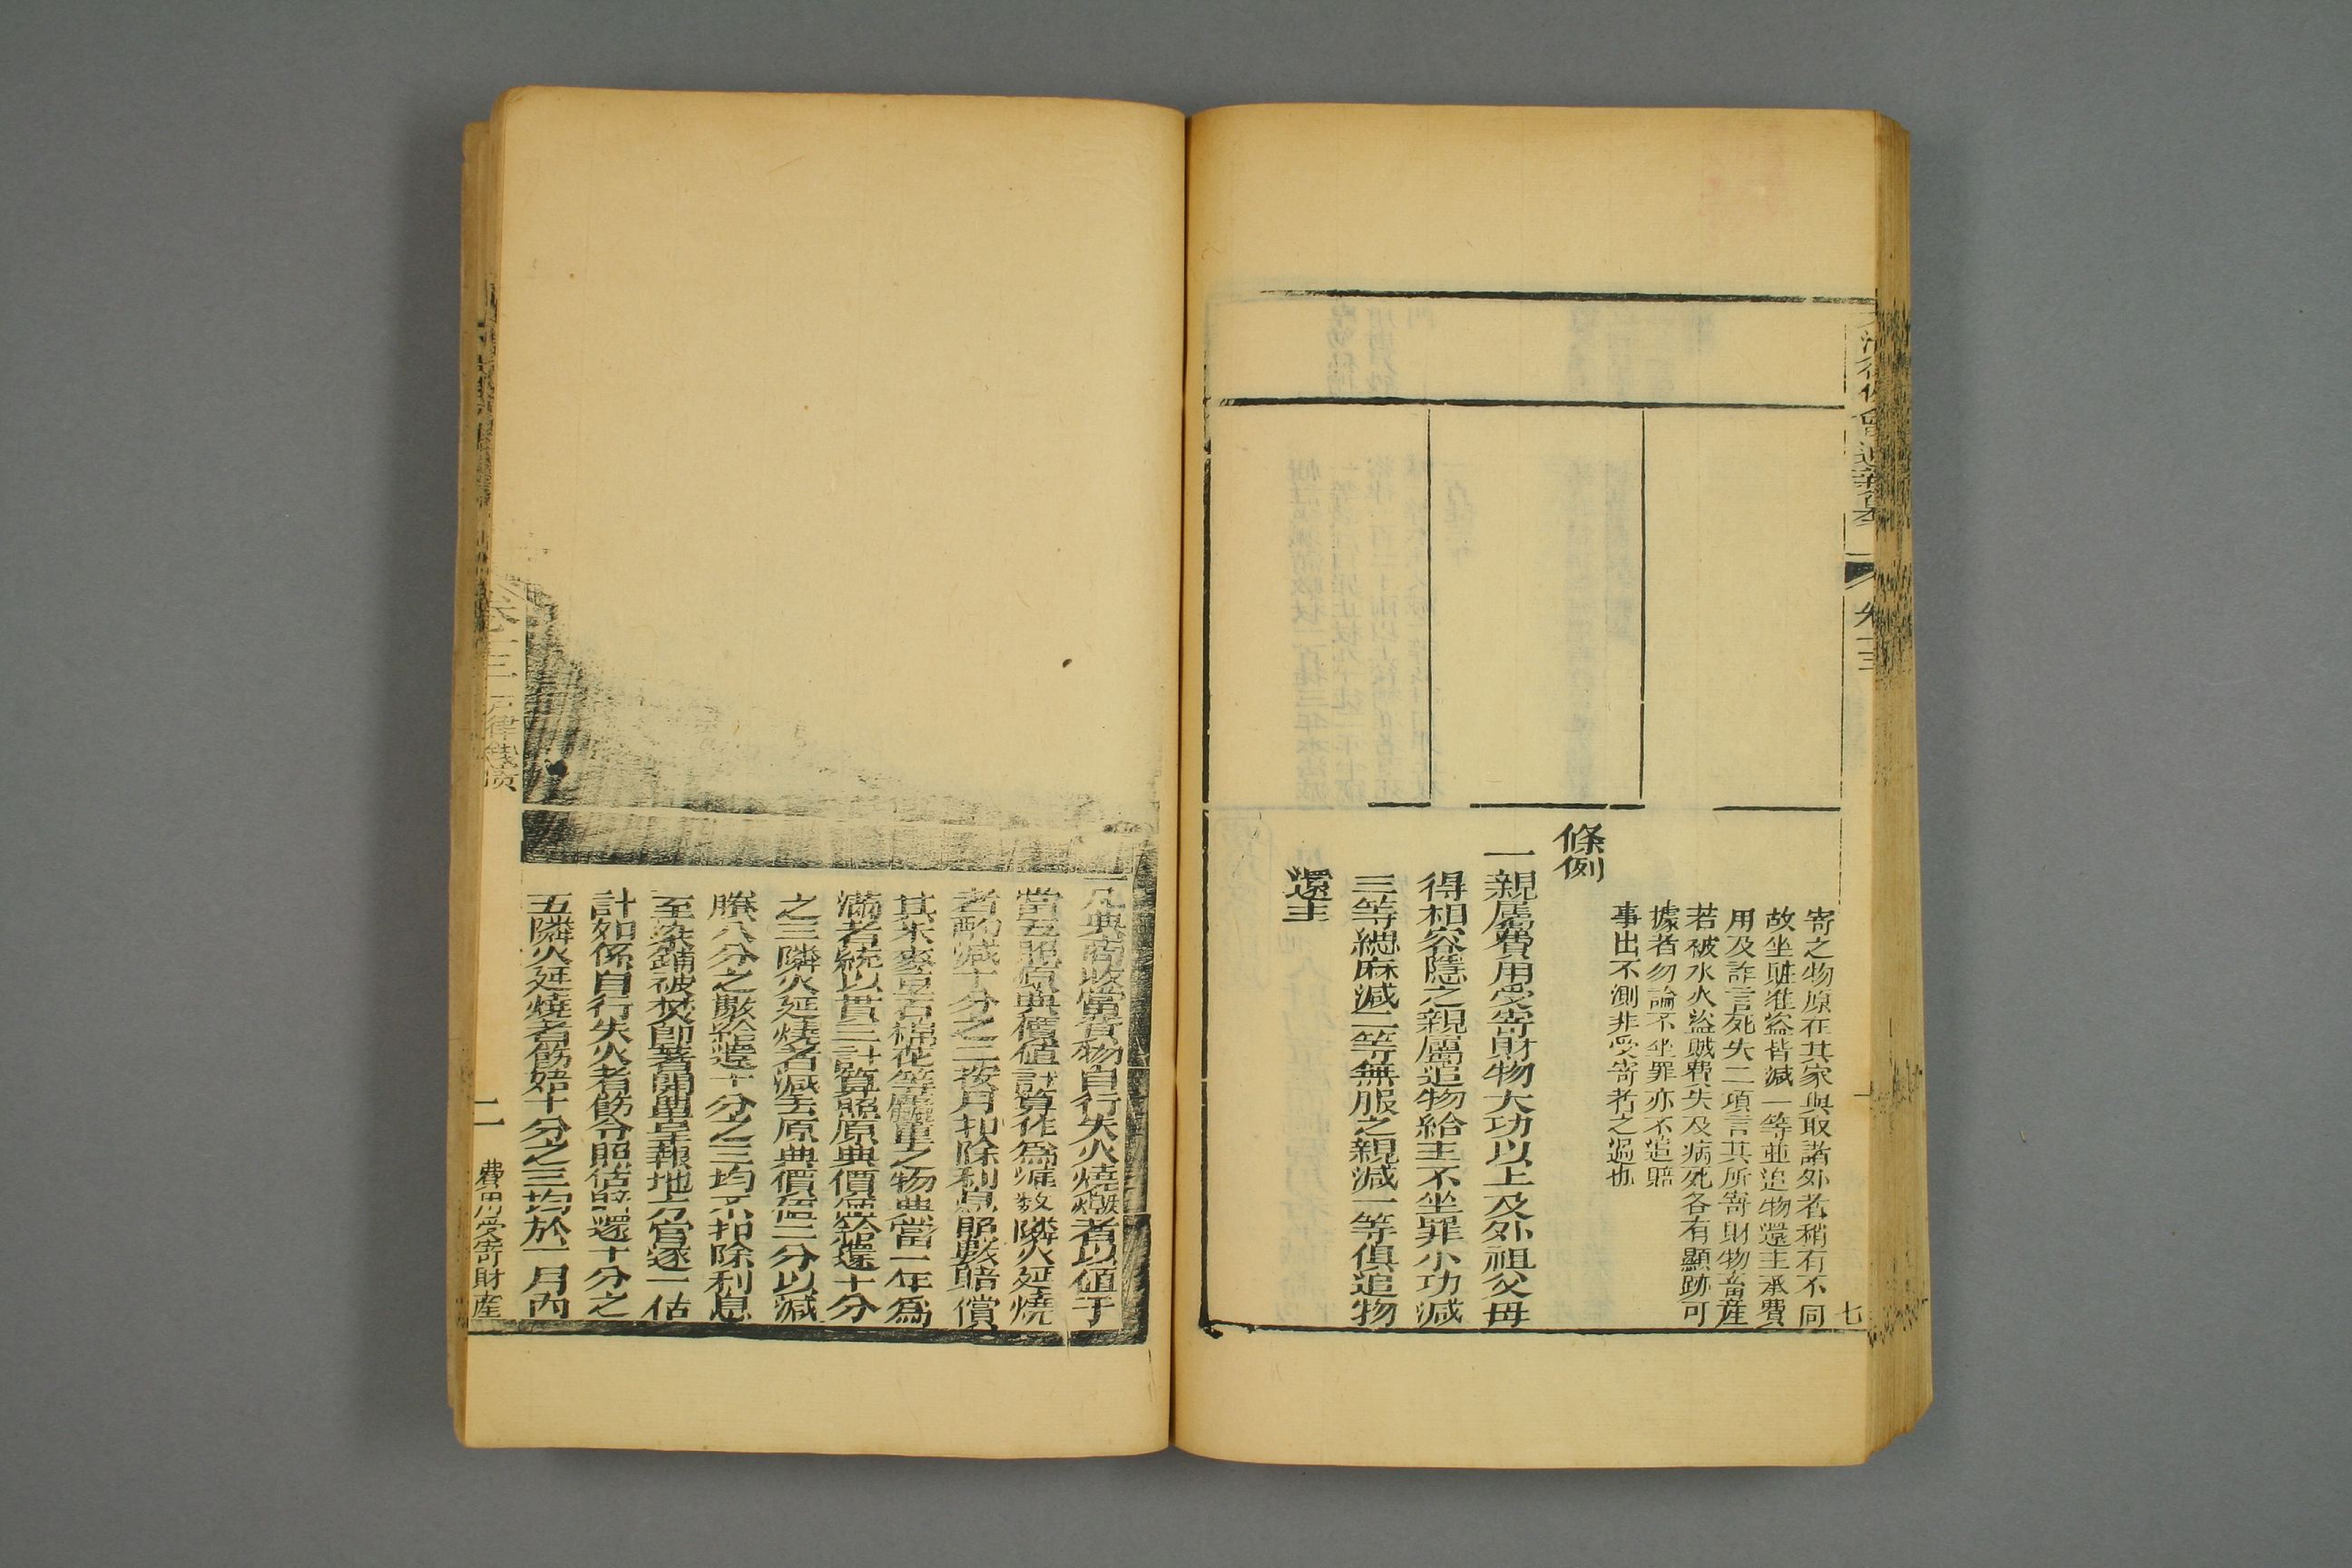 寄之物原在其家與取諸外者稍有不同
故坐賍准盜皆減一等並追物還主承費
用及詐言死失二項言其所寄財物畜產
若被水火盜賊費失及病死各有顯跡可
據者勿論不坐罪亦不追賠
事出不測非受寄者之過也
條例
一親屬費用受寄財物大功以上及外祖父母
得相容隱之親屬追物給主不坐罪小功減
三等緦麻減二等無服之親減一等俱追物
還主
七
一凡典商收當貨物自行失火燒燬者以值十
當五照原典價值計算作為準數隣火延燒
者酌減十分之二按月扣除利息照數賠償
其米麥豆石棉花等麤重之物典當一年為
滿者統以貫三計算照原典價值給還十分
之三隣火延燒者減去原典價值二分以減
賸八分之數給還十分之三均不扣除利息
至染鋪被焚即著開單呈報地方官逐一估
計如係自行失火者飭令照估賠還十分之
五隣火延燒者飭賠十分之三均於一月內
卷十三 戶律錢債
二 費用受寄財產